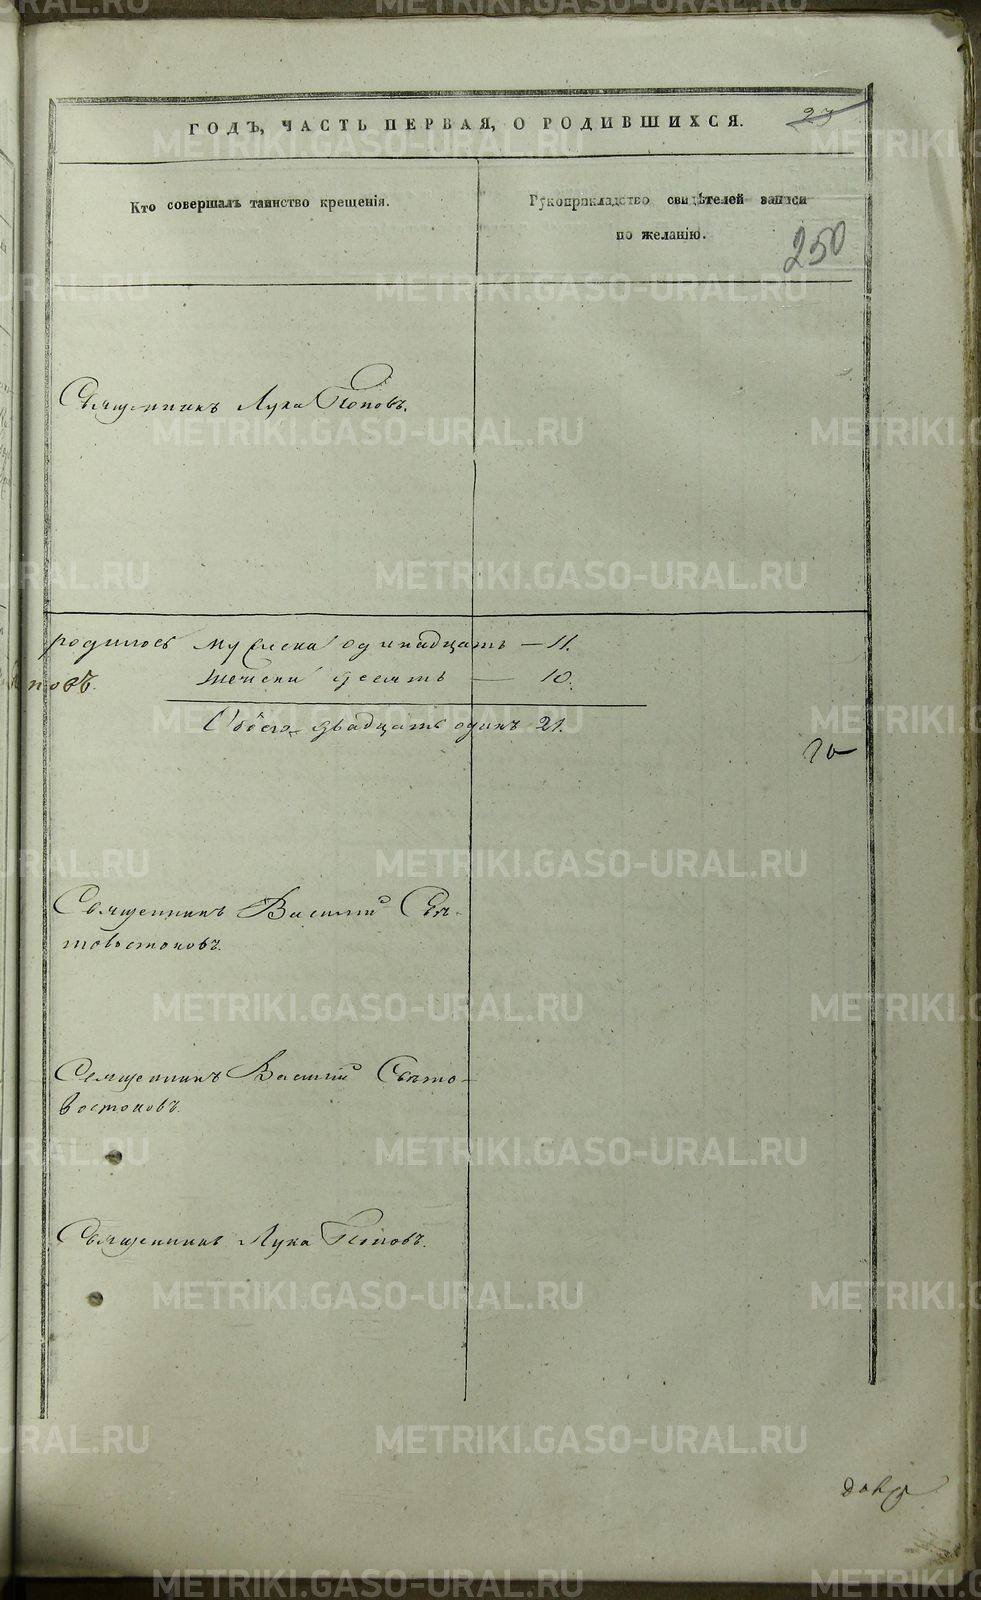 ГОДЪ, ЧАСТЬ ПЕРВАЯ, О РОДИВШИХСЯ.
23
Кто совершалъ таинство крещенія.
Рукоприкладство свидѣтелей записи
по желанію.
250
Священникъ Лука Поповъ.
родилось мужеска одинадцать — 11.
повъ. женска десять — 10.
Обоего двадцать одинъ 21.
Священникъ Василій Свя-
товостоковъ.
Священникъ Василій Свято-
востоковъ.
Священникъ Лука Поповъ.
METRIKI.GASO-URAL.RU